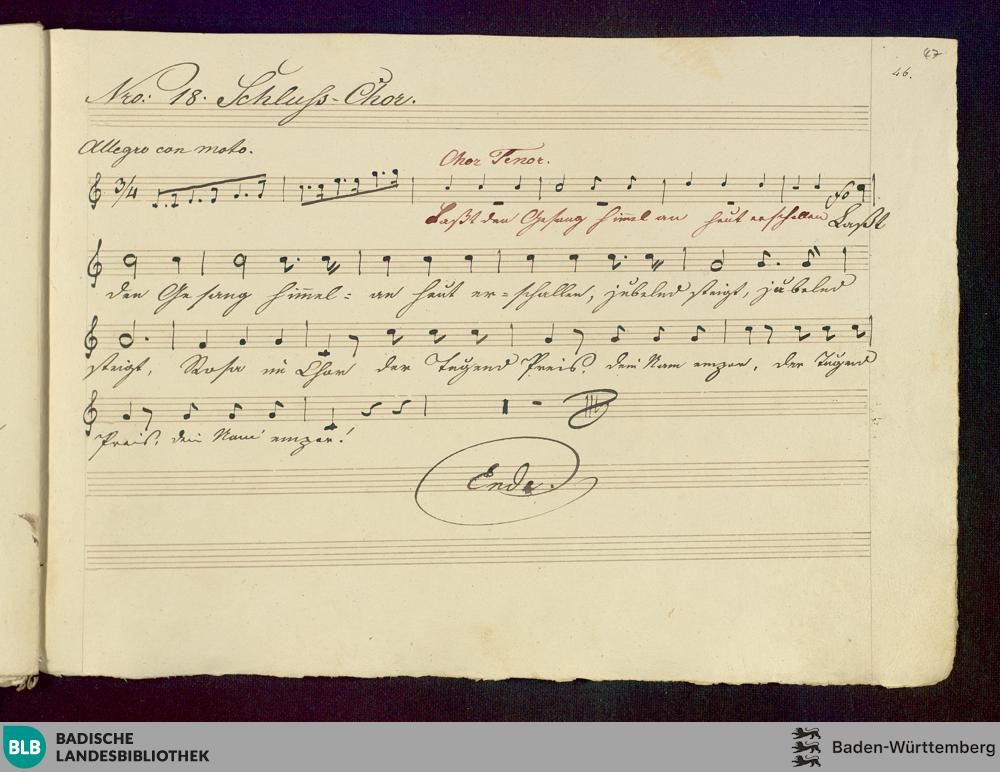 47
46.
Nro: 18. Schluſs-Chor.
Allegro con moto.
Chor Tenor.
3/4
fo
Laßt den Gesang himmel an heut erschallen Laßt
den Gesang himmel= an heut er=schallen, jubelnd steigt, jubelnd
steigt, Rosa im Chor der Tugend Preis. dein Nam empor, der Tugend
Preis, dein Nam' empor!
Ende.
BLB BADISCHE
LANDESBIBLIOTHEK
Baden-Württemberg